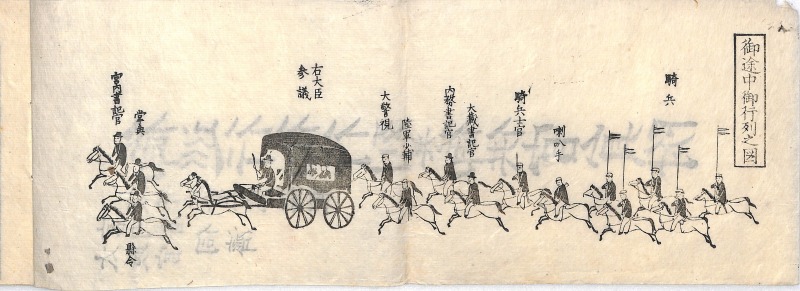 御途中御行列之図
騎兵
喇叭手
騎兵士官
大蔵書記官
内務書記官
陸軍少輔
大警視
右大臣
参議
掌典
宮内書記官
縣令